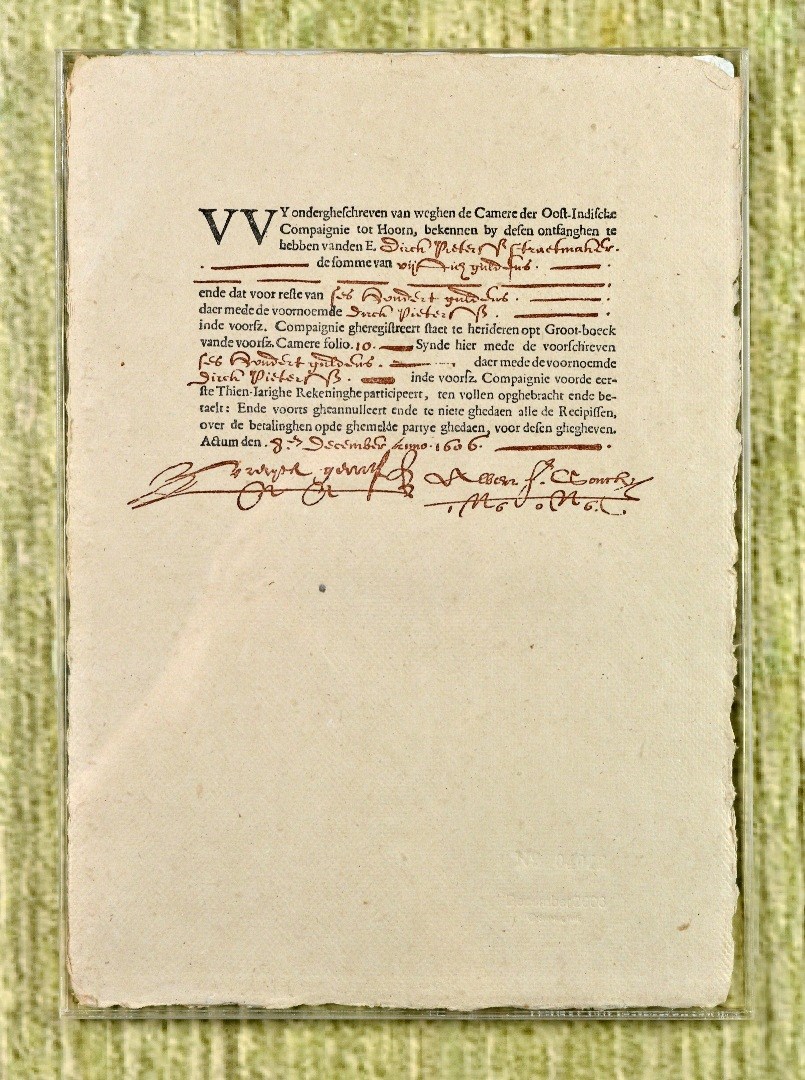 VVY ondergheſchreven van weghen de Camere der Ooſt-Indiſcke
Compaignie tot Hoorn, bekennen by deſen ontfanghen te
hebben vanden E. Dirck Pieterſz ſtraetmaker.
de ſomme van vijftich guldens.
ende dat voor reſte van ſes hondert guldens.
daer mede de voornoemde dirck Pieterſz.
inde voorſz. Compaignie gheregiſtreert ſtaet te herideren opt Groot-boeck
vande voorſz. Camere folio. 10. Synde hier mede de voorſchreven
ſes hondert guldens. daer mede de voornoemde
dirck Pieterſz. inde voorſz. Compaignie voorde eer-
ſte Thien-Iarighe Rekeninghe participeert, ten vollen opghebracht ende be-
taelt: Ende voorts gheannulleert ende te niete ghedaen alle de Recipiſſen,
over de betalinghen opde ghemelde partye ghedaen, voor deſen ghegheven.
Actum den. 8. December Anno. 1606.
December